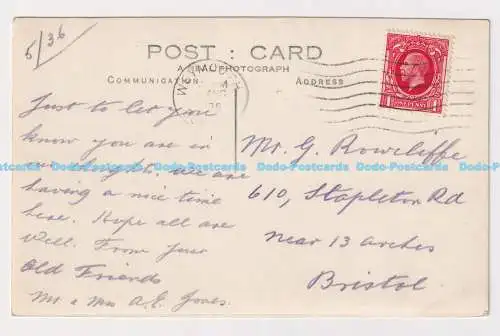 5/36
POST : CARD
A REAL PHOTOGRAPH
COMMUNICATION
ADDRESS
WEYMOUTH
ONE PENNY
Just to let you
know you are in
our thoughts, we are
having a nice time
here. Hope all are
well. From your
Old Friends
Mr & Mrs A.E. Jones.
Mr. G. Rowcliffe
610, Stapleton Rd
near 13 arches
Bristol
Dodo-Postcards Dodo-Postcards Dodo-Postcards Dodo-Postcards Dodo-Postcards